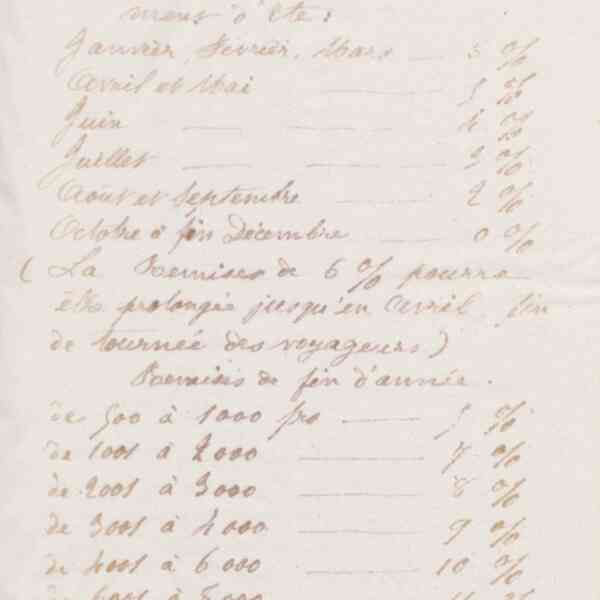 d'été :
Janvier, Février, Mars — %
Avril et Mai — 5 %
Juin — — 4 %
Juillet — — 3 %
Août et Septembre — 2 %
Octobre à fin Décembre — 0 %
( La Remise de 6 % pourra
être prolongée jusqu'en Avril fin
de tournée des voyageurs )
Remises de fin d'année .
de 500 à 1000 frs — 5 %
de 1001 à 2000 — 7 %
de 2001 à 3000 — 8 %
de 3001 à 4000 — 9 %
de 4001 à 6000 — 10 %